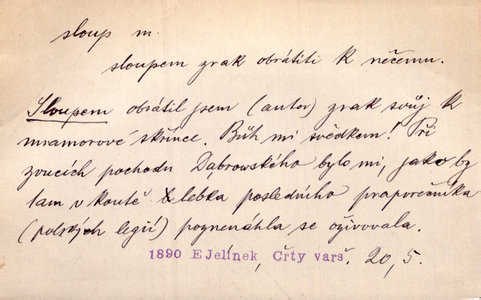 sloup m.
sloupem zrak obrátiti k něčemu.
Sloupem obrátil jsem (autor) zrak svůj k
mramorové skřínce. Bůh mi svědkem! Při
zvucích pochodu Dabrowského bylo mi, jako by
tam v koutě lebka posledního praporečníka
(polských legií) poznenáhla se oživovala.
1890 EJelínek, Črty varš. 20, 5.